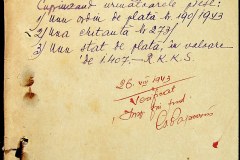 Cuprinzând următoarele piese:
1) Un ordin de plată № 190/1943
2) Una chitanță № 273/
3) Un stat de plată, în valoare
de 1.407.- R.K.K.S.
26.VII 1943
Verificat